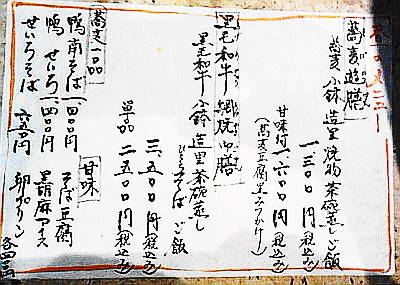 春のメニュー
蕎麦遊膳
蕎麦 小鉢 造里 焼物 茶碗蒸し ご飯
一三〇〇円(税込み)
甘味付 一六〇〇円(税込み)
(蕎麦豆腐黒みつかけ)
黒毛和牛 網焼中膳
黒毛和牛 小鉢 造里 茶碗蒸し
そば ご飯
三、五〇〇円(税込み)
単品 二五〇〇円(税込み)
蕎麦一品
鴨南そば 一四〇〇円
鴨せいろ 一四〇〇円
せいろそば 六五〇円
甘味
そば豆腐
黒胡麻アイス
卵プリン